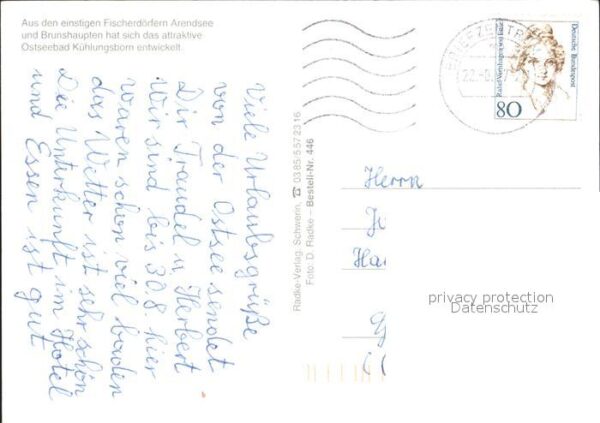 Aus den einstigen Fischerdörfern Arendsee
und Brunshaupten hat sich das attraktive
Ostseebad Kühlungsborn entwickelt.
Viele Urlaubsgrüße
von der Ostsee sendet
Dir Traudel u. Herbert
Wir sind bis 30.8. hier
waren schon viel baden
das Wetter ist sehr schön
Die Unterkunft im Hotel
und Essen ist gut
Radke-Verlag, Schwerin, ☎ 03 85/5 57 23 16
Foto: D. Radke – Bestell-Nr. 446
BRIEFZENTR
Deutsche Bundespost
Rahel Varnhagen von Ense
80
Herrn
privacy protection
Datenschutz